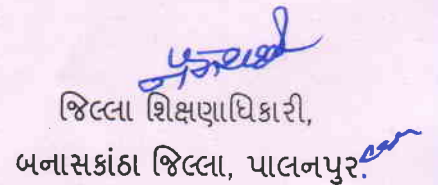 જિલ્લા શિક્ષણાધિકારી,
બનાસકાંઠા જિલ્લા, પાલનપુર.